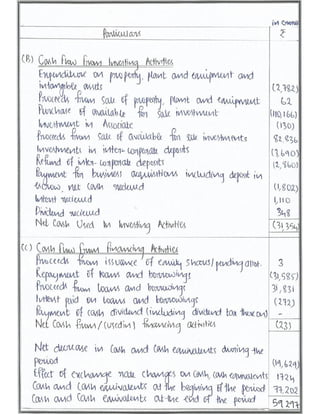 in crores
Particulars ₹
(B) Cash flow from Investing Activities
Expenditure on property, plant and equipment and
intangible assets (2,782)
Proceeds from sale of property, plant and equipment 62
Purchase of available for sale investment (110,166)
Investment in Associate (130)
Proceeds from sale of available for sale investments 82,836
Investments in inter-corporate deposits (3,690)
Refund of inter-corporate deposits
Payment for business acquisitions including deposit in
escrow, net cash recieved (1,802)
Interest recieved 1,110
Dividend recieved 348
Net Cash Used In Investing Activities (31,354)
(C) Cash flow from financing Activities
Proceeds from issuance of equity shares/pending allot. 3
Repayment of loans and borrowings (31,585)
Proceeds from loans and borrowings 31,831
Interest paid on loans and borrowings (272)
Payment of cash dividend (including dividend tax thereon) -
Net Cash from/(used in) financing activities (23)
Net decrease in Cash and Cash equivalents during the
period (19,629)
Effect of exchange rate changes on Cash, cash equivalents 1724
Cash and Cash equivalents at the beginning of the period 77,202
Cash and Cash equivalents at the end of the period 59,297